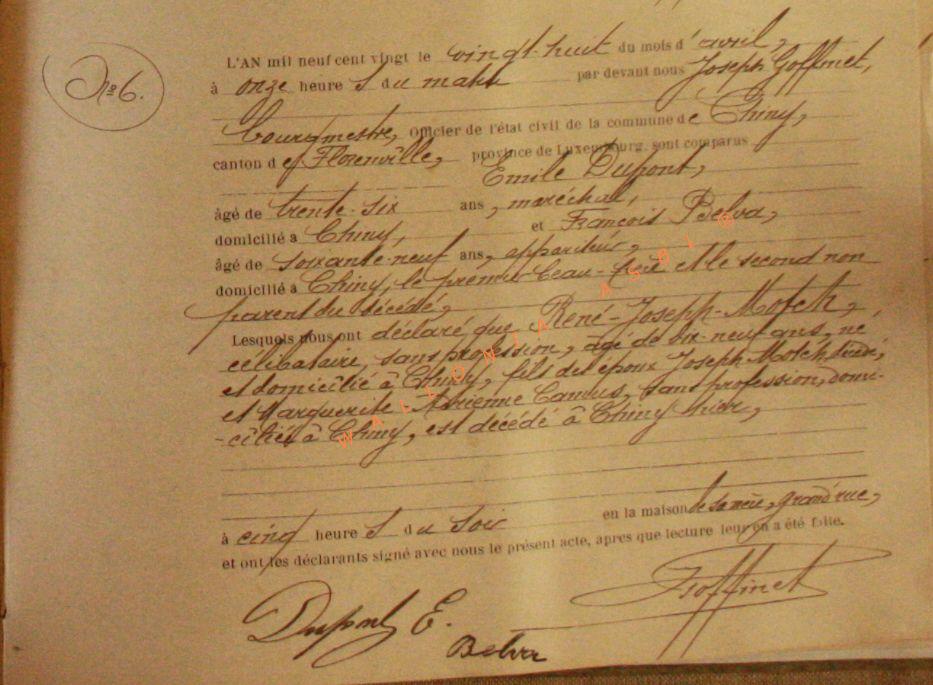 N° 6.
L'AN mil neuf cent vingt le vingt-huit du mois d'avril,
à onze heure s du matin par devant nous Joseph Goffinet,
bourgmestre, Officier de l'état civil de la commune de Chiny,
canton de Florenville, province de Luxembourg, sont comparus
Emile Dupont,
âgé de trente-six ans, maréchal,
domicilié à Chiny, et François Belva,
âgé de soixante-neuf ans, appariteur,
domicilié à Chiny, le premier beau-frère et le second non
parent du décédé,
Lesquels nous ont déclaré que René-Joseph-Motch,
célibataire, sans profession, âgé de dix-neuf ans, né
et domicilié à Chiny, fils des époux Joseph Motch, décédé,
et Marguerite Adrienne Camus, sans profession, domi-
-ciliée à Chiny, est décédé à Chiny hier,
à cinq heure s du soir en la maison de sa mère, grand'rue,
et ont les déclarants signé avec nous le présent acte, après que lecture leur en a été faite.
Dupont E.
JGoffinet
Belva
WALLONIA ASBL ©